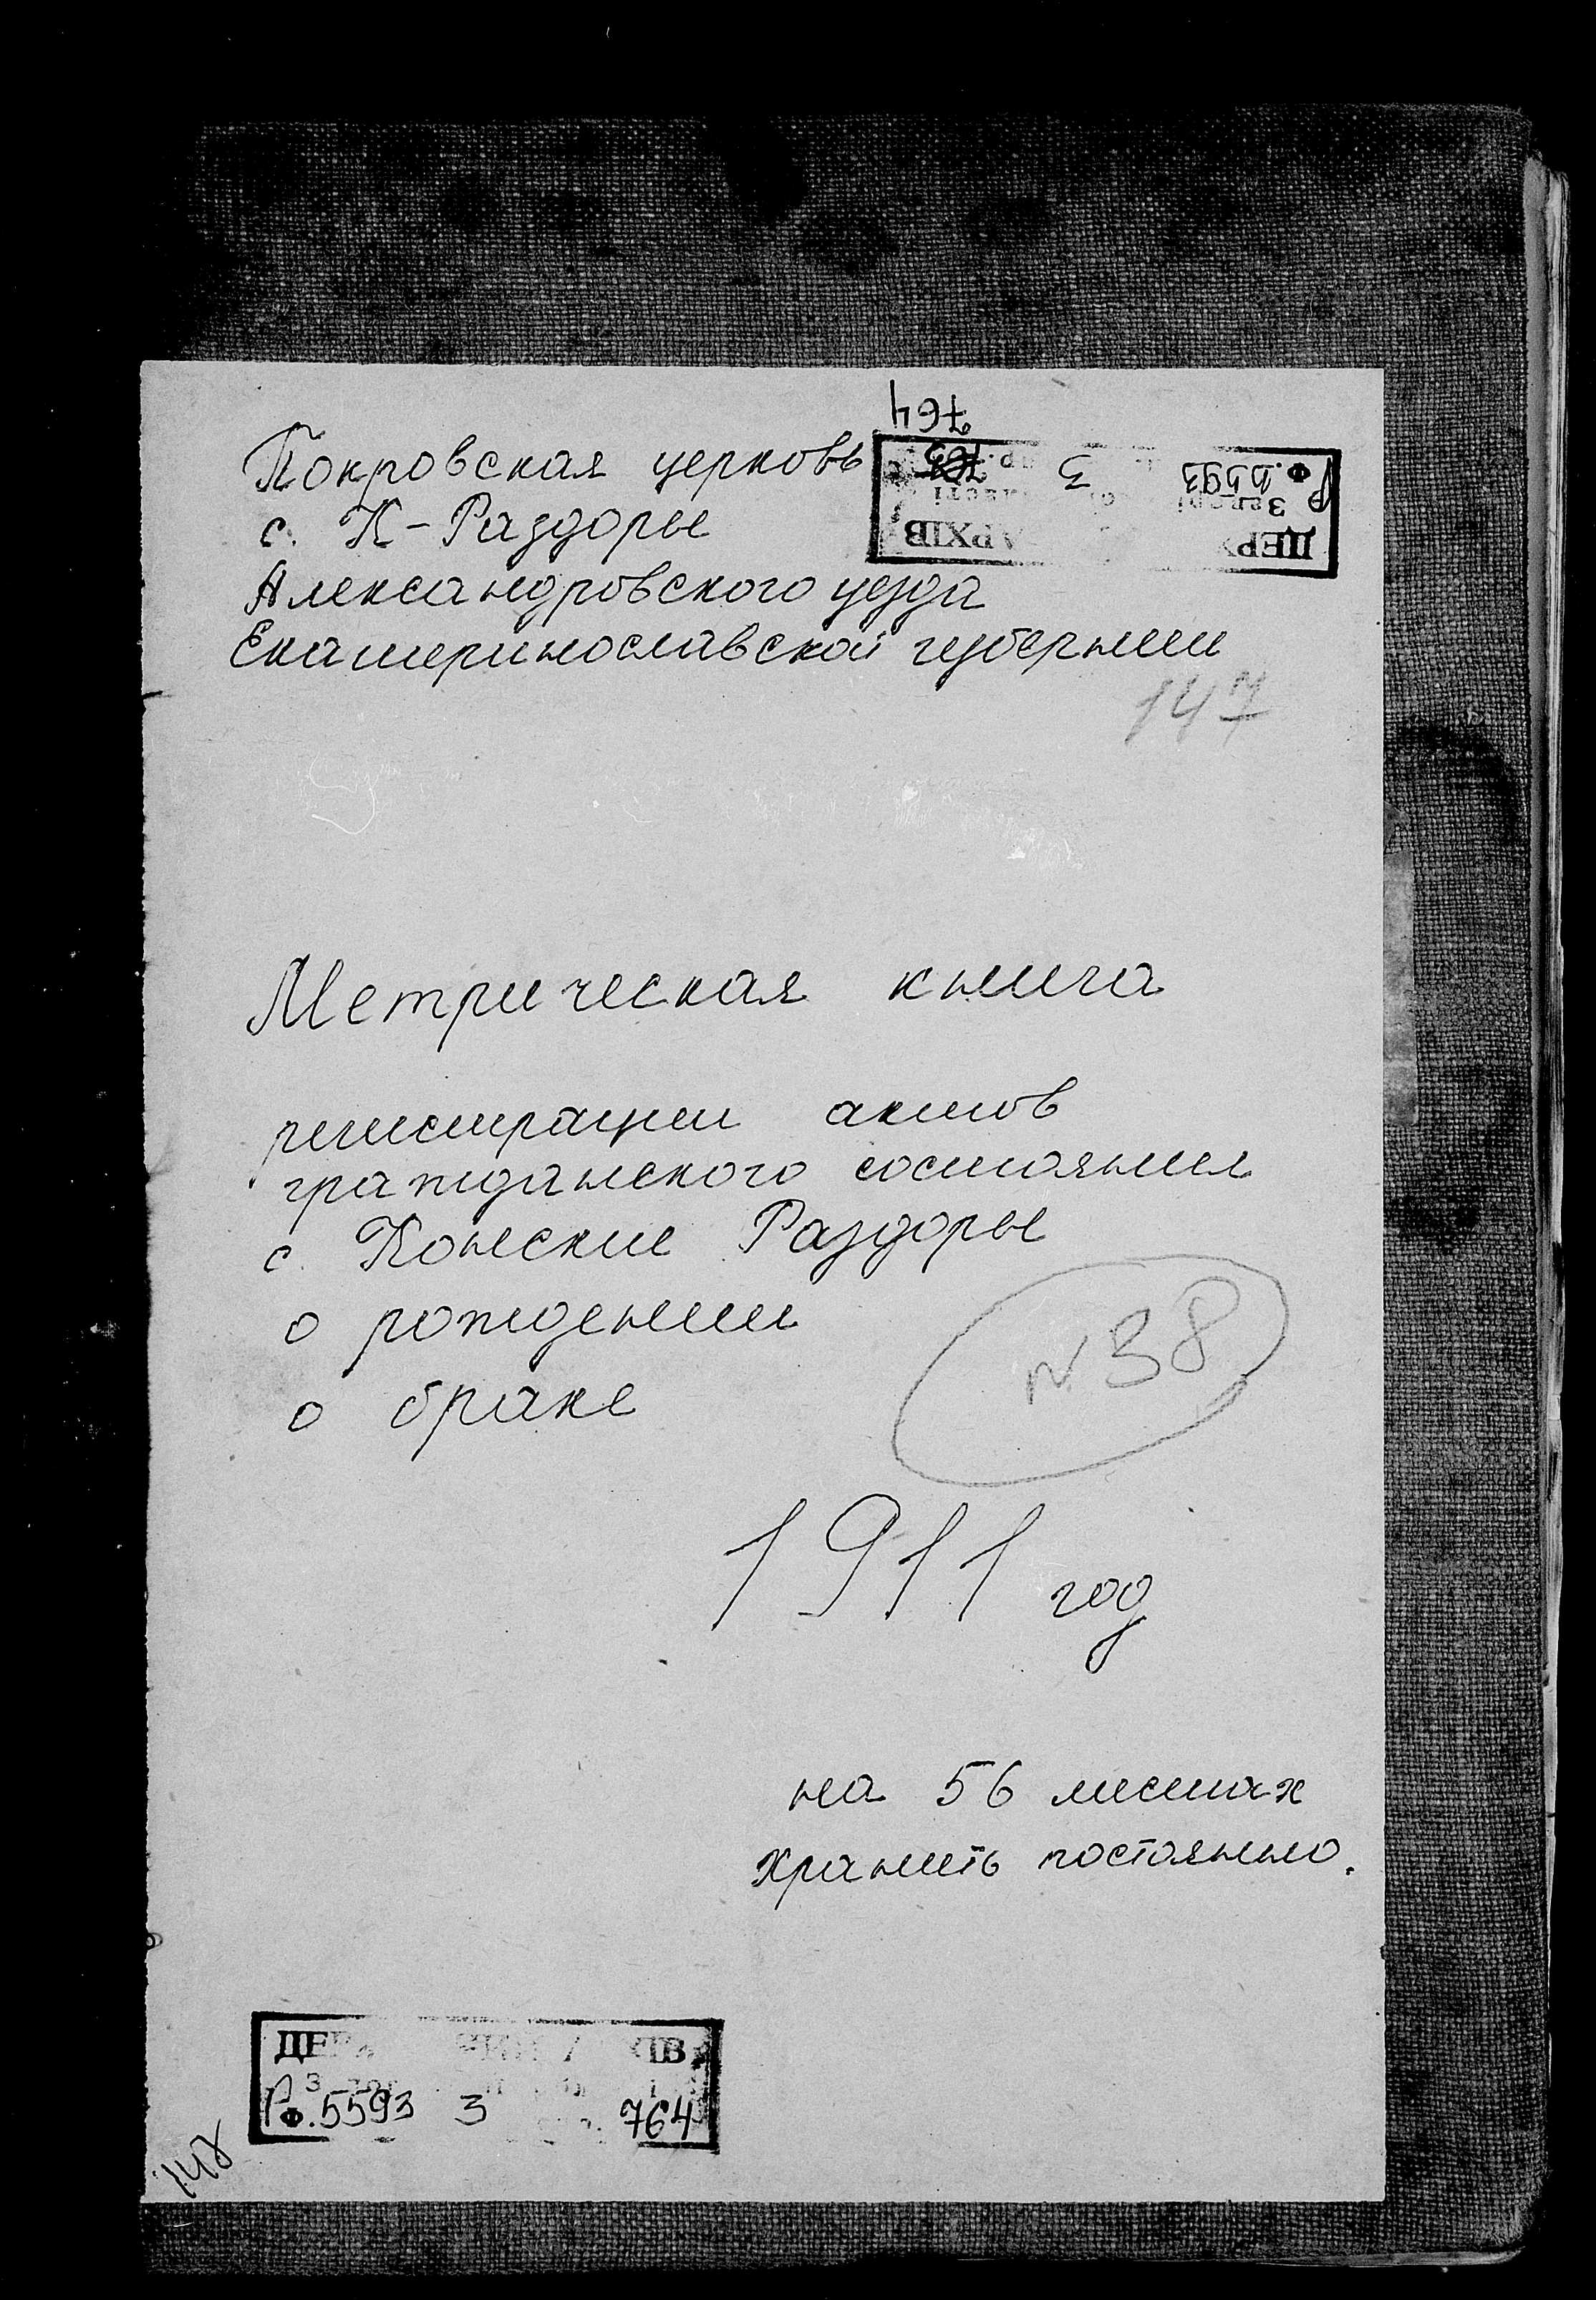 764
Покровская церковь
с. К-Раздоры
Александровского уезда
Екатеринославской губернии
Р
Ф. 5593 3
147
Метрическая книга
регистрации актов
гражданского состояния
с. Конские Раздоры
о рождении
о браке
N 38
1911 год
на 56 листах
Хранить постоянно.
Р
Ф. 5593 3 764